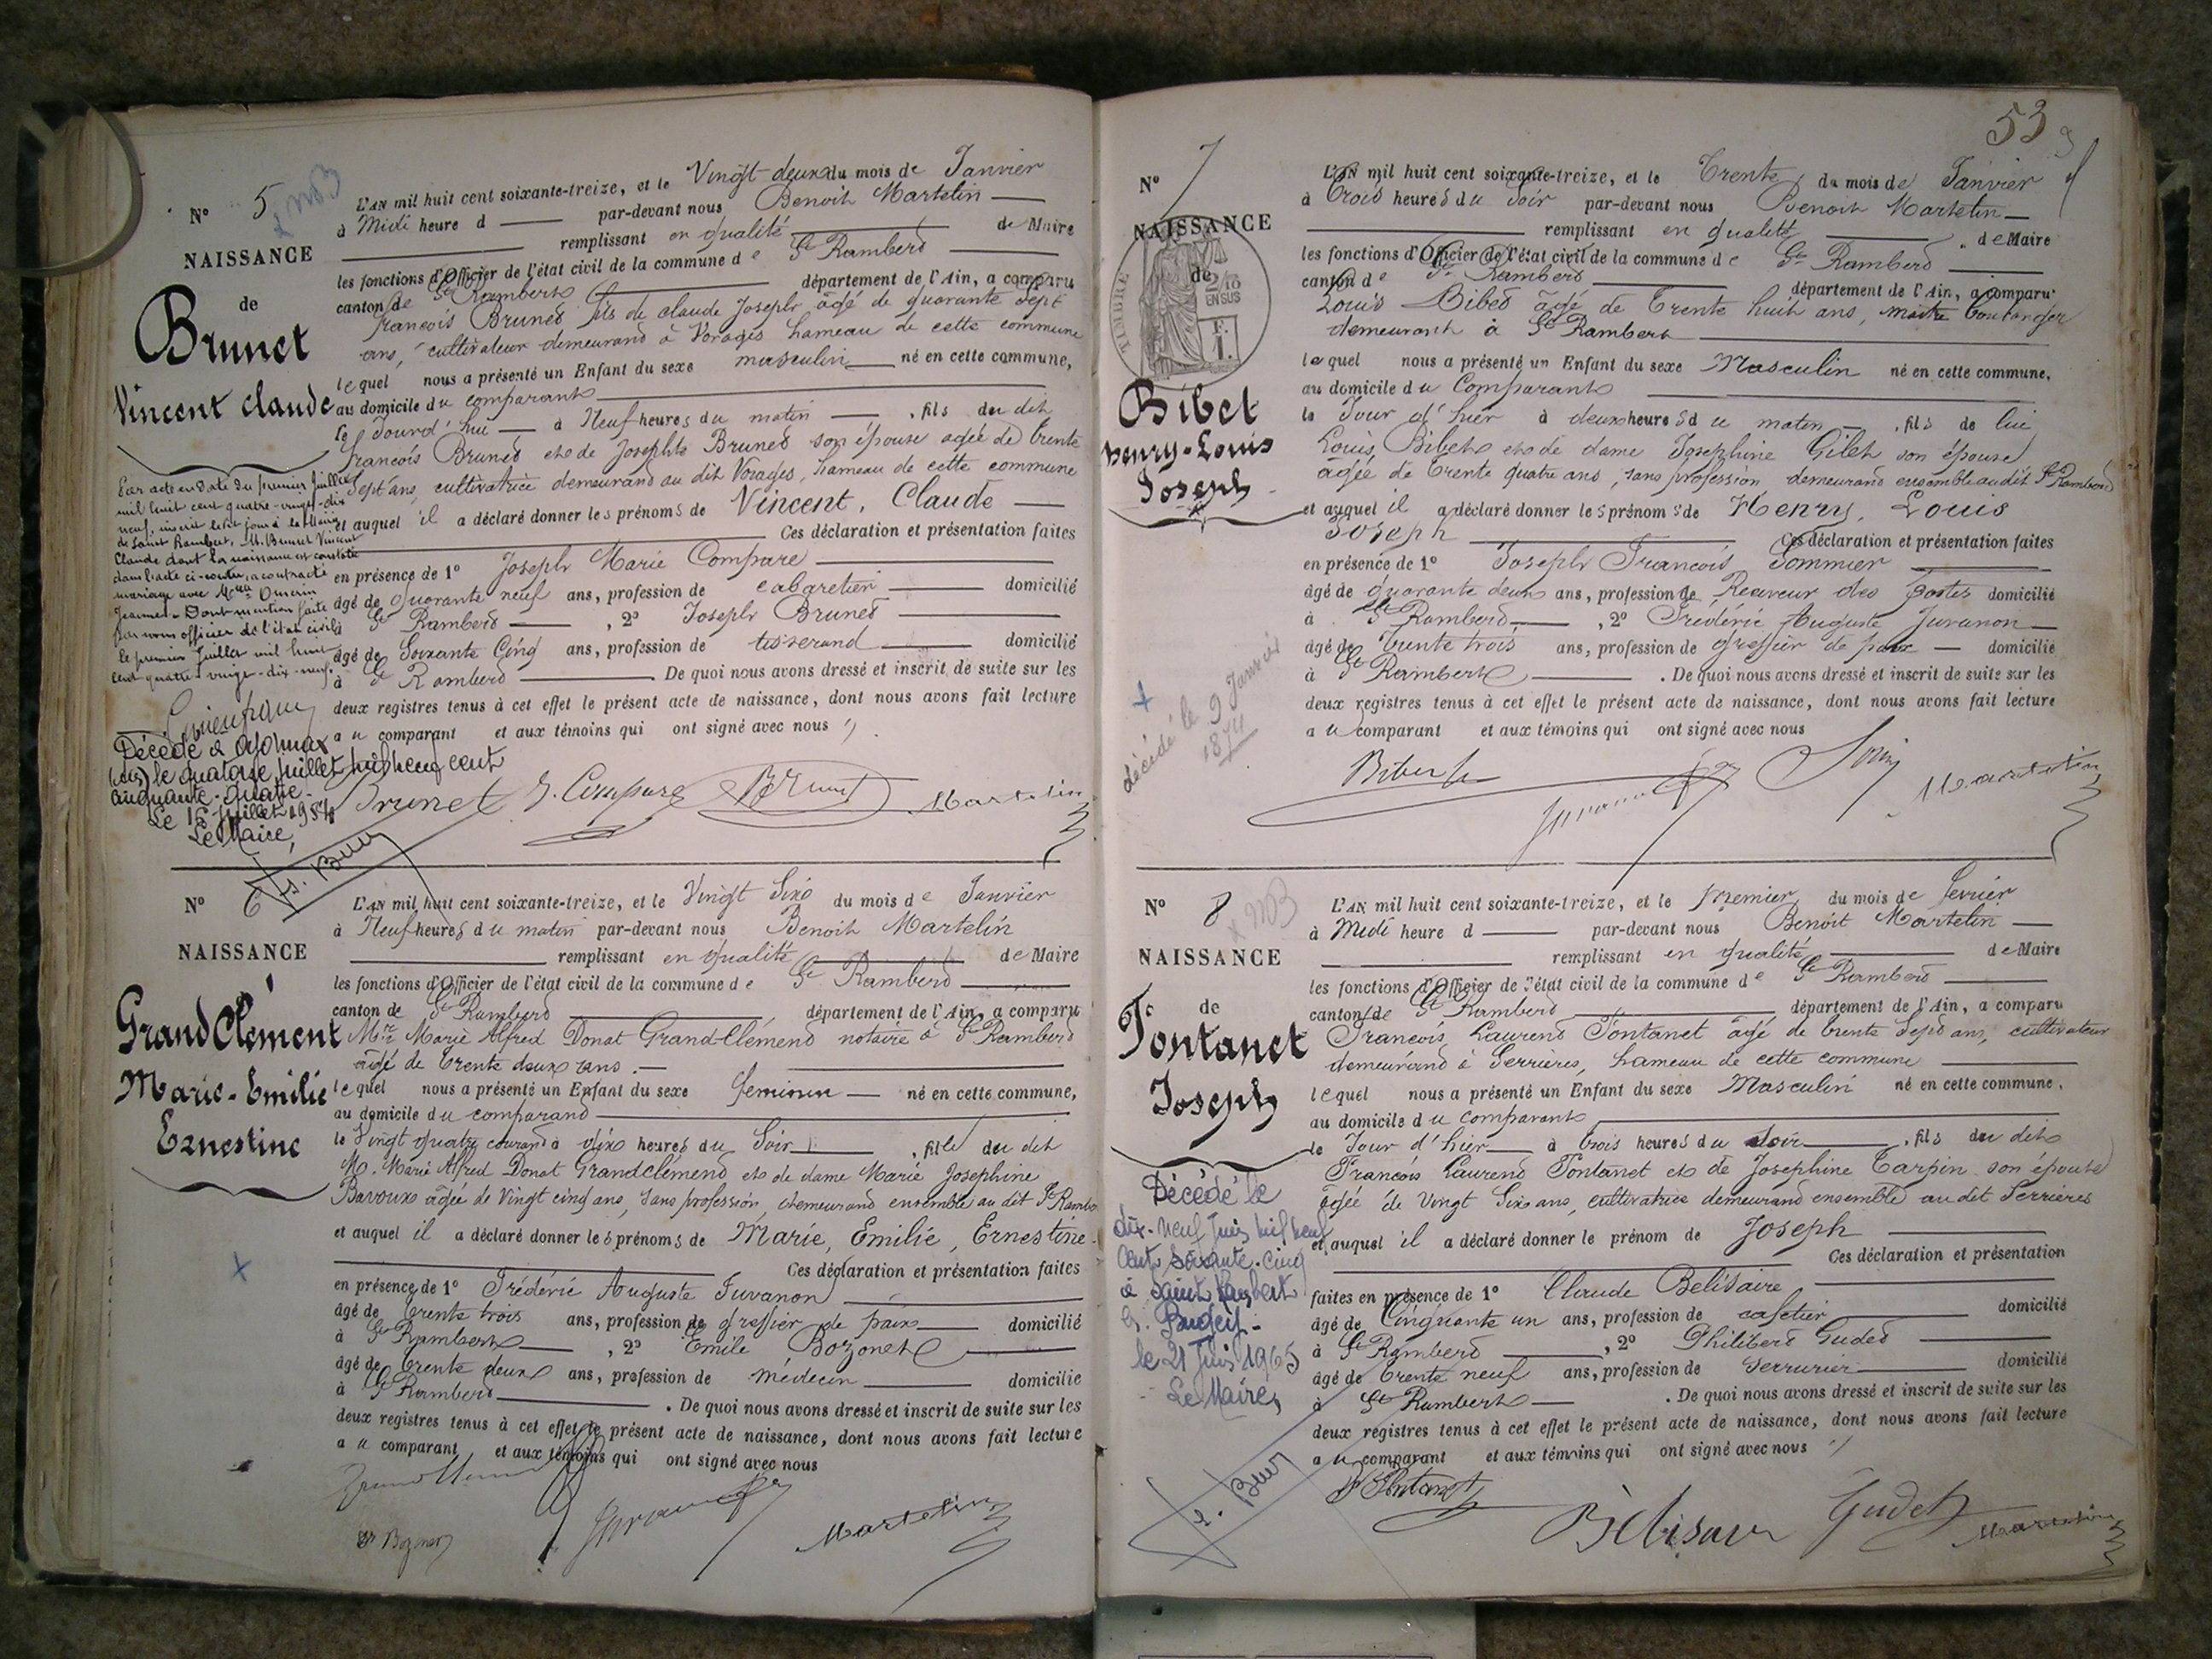 N° 5
NAISSANCE
de
Brunet
Vincent claude
L'AN mil huit cent soixante-treize, et le Vingt deux du mois de Janvier
à Midi heure d par-devant nous Benoit Martelin
remplissant en qualité de Maire
les fonctions d'Officier de l'état civil de la commune de St Rambert
canton de St Rambert département de l'Ain, a comparu
francois Brunet fils de claude Joseph âgé de quarante sept
ans, cultivateur demeurant à Vorages hameau de cette commune
lequel nous a présenté un Enfant du sexe masculin né en cette commune,
au domicile du comparant
le Jourd'hui à Neuf heures du matin, fils du dit
francois Brunet et de Josephte Brunet son épouse agée de trente
Sept ans, cultivatrice demeurant au dit Vorages, hameau de cette commune
et auquel il a déclaré donner les prénoms de Vincent, Claude
Ces déclaration et présentation faites
en présence de 1° Joseph Marie Compare
âgé de quarante neuf ans, profession de cabaretier domicilié
à St Rambert, 2° Joseph Brunet
âgé de Soixante Cinq ans, profession de tisserand domicilié
à St Rambert. De quoi nous avons dressé et inscrit de suite sur les
deux registres tenus à cet effet le présent acte de naissance, dont nous avons fait lecture
au comparant et aux témoins qui ont signé avec nous
Brunet J. Compare Brunet Martelin
Par acte en date du premier Juillet
mil huit cent quatre-vingt-dix
neuf, inscrit le dit jour à la Mairie
de Saint Rambert, M. Brunet Vincent
Claude dont la naissance est constatée
dans l'acte ci-contre, a contracté
mariage avec
Jeanne. Dont mention faite
par nous officier de l'état civil
le premier Juillet mil huit
cent quatre-vingt-dix-neuf.
Décédé à Oyonnax
(Ain) le quatorze juillet mil neuf cent
cinquante-quatre.
Le 15 juillet 1954
Le Maire,
N° 6
NAISSANCE
Grand Clément
Marie-Emilie
Ernestine
L'AN mil huit cent soixante-treize, et le Vingt Six du mois de Janvier
à Neuf heures du matin par-devant nous Benoit Martelin
remplissant en qualité de Maire
les fonctions d'Officier de l'état civil de la commune de St Rambert
canton de St Rambert département de l'Ain, a comparu
Mre Marie Alfred Donat Grand-Clément notaire à St Rambert
âgé de trente deux ans.
lequel nous a présenté un Enfant du sexe feminin né en cette commune,
au domicile du comparant
le Vingt quatre courant à dix heures du Soir, fille du dit
M. Marie Alfred Donat Grandclément et de dame Marie Josephine
Bavoux âgée de Vingt cinq ans, sans profession, demeurant ensemble au dit St Rambert
et auquel il a déclaré donner les prénoms de Marie, Emilie, Ernestine
Ces déclaration et présentation faites
en présence de 1° Frédéric Auguste Juvanon
âgé de trente trois ans, profession de greffier de paix domicilié
à St Rambert, 2° Emile Bozonet
âgé de trente deux ans, profession de médecin domicilié
à St Rambert. De quoi nous avons dressé et inscrit de suite sur les
deux registres tenus à cet effet le présent acte de naissance, dont nous avons fait lecture
au comparant et aux témoins qui ont signé avec nous
Martelin
53
N° 7
NAISSANCE
de
TIMBRE
ENSUS
Bibet
henry-Louis
Joseph
L'AN mil huit cent soixante-treize, et le Trente du mois de Janvier
à trois heures du Soir par-devant nous Benoit Martelin
remplissant en qualité de Maire
les fonctions d'Officier de l'état civil de la commune de St Rambert
canton de St Rambert département de l'Ain, a comparu
Louis Bibet âgé de trente huit ans, maitre boulanger
demeurant à St Rambert
lequel nous a présenté un Enfant du sexe Masculin né en cette commune,
au domicile du Comparant
le Jour d'hier à deux heures du matin, fils de lui
Louis Bibet et de dame Josephine Gilet son épouse
âgée de trente quatre ans, sans profession demeurant ensemble au dit St Rambert
et auquel il a déclaré donner les prénoms de Henry, Louis
Joseph Ces déclaration et présentation faites
en présence de 1° Joseph Francois Sommier
âgé de quarante deux ans, profession de Receveur des postes domicilié
à St Rambert, 2° Frédéric Auguste Juvanon
âgé de trente trois ans, profession de greffier de paix domicilié
à St Rambert. De quoi nous avons dressé et inscrit de suite sur les
deux registres tenus à cet effet le présent acte de naissance, dont nous avons fait lecture
au comparant et aux témoins qui ont signé avec nous
Martelin
décédé le 9 Janvier
1874
N° 8
NAISSANCE
de
Fontanet
Joseph
L'AN mil huit cent soixante-treize, et le premier du mois de fevrier
à Midi heure d par-devant nous Benoit Martelin
remplissant en qualité de Maire
les fonctions d'Officier de l'état civil de la commune de St Rambert
canton de St Rambert département de l'Ain, a comparu
Francois Laurent Fontanet âgé de trente sept ans, cultivateur
demeurant à Serrières, hameau de cette commune
lequel nous a présenté un Enfant du sexe Masculin né en cette commune,
au domicile du comparant
le Jour d'hier à trois heures du Soir, fils du dit
Francois Laurent Fontanet et de Josephine Tarpin son épouse
âgée de Vingt Six ans, cultivatrice demeurant ensemble au dit Serrières
et auquel il a déclaré donner le prénom de Joseph
Ces déclaration et présentation
faites en présence de 1° Claude Belisaire
âgé de Cinquante un ans, profession de cafetier domicilié
à St Rambert, 2° Philibert Gudet
âgé de trente neuf ans, profession de Serrurier domicilié
à St Rambert. De quoi nous avons dressé et inscrit de suite sur les
deux registres tenus à cet effet le présent acte de naissance, dont nous avons fait lecture
au comparant et aux témoins qui ont signé avec nous
Fontanet Belisair Gudet Martelin
Décédé le
dix-neuf Juin mil neuf
cent soixante-cinq
à Saint Rambert
en Bugey.
le 21 Juin 1965
Le Maire,